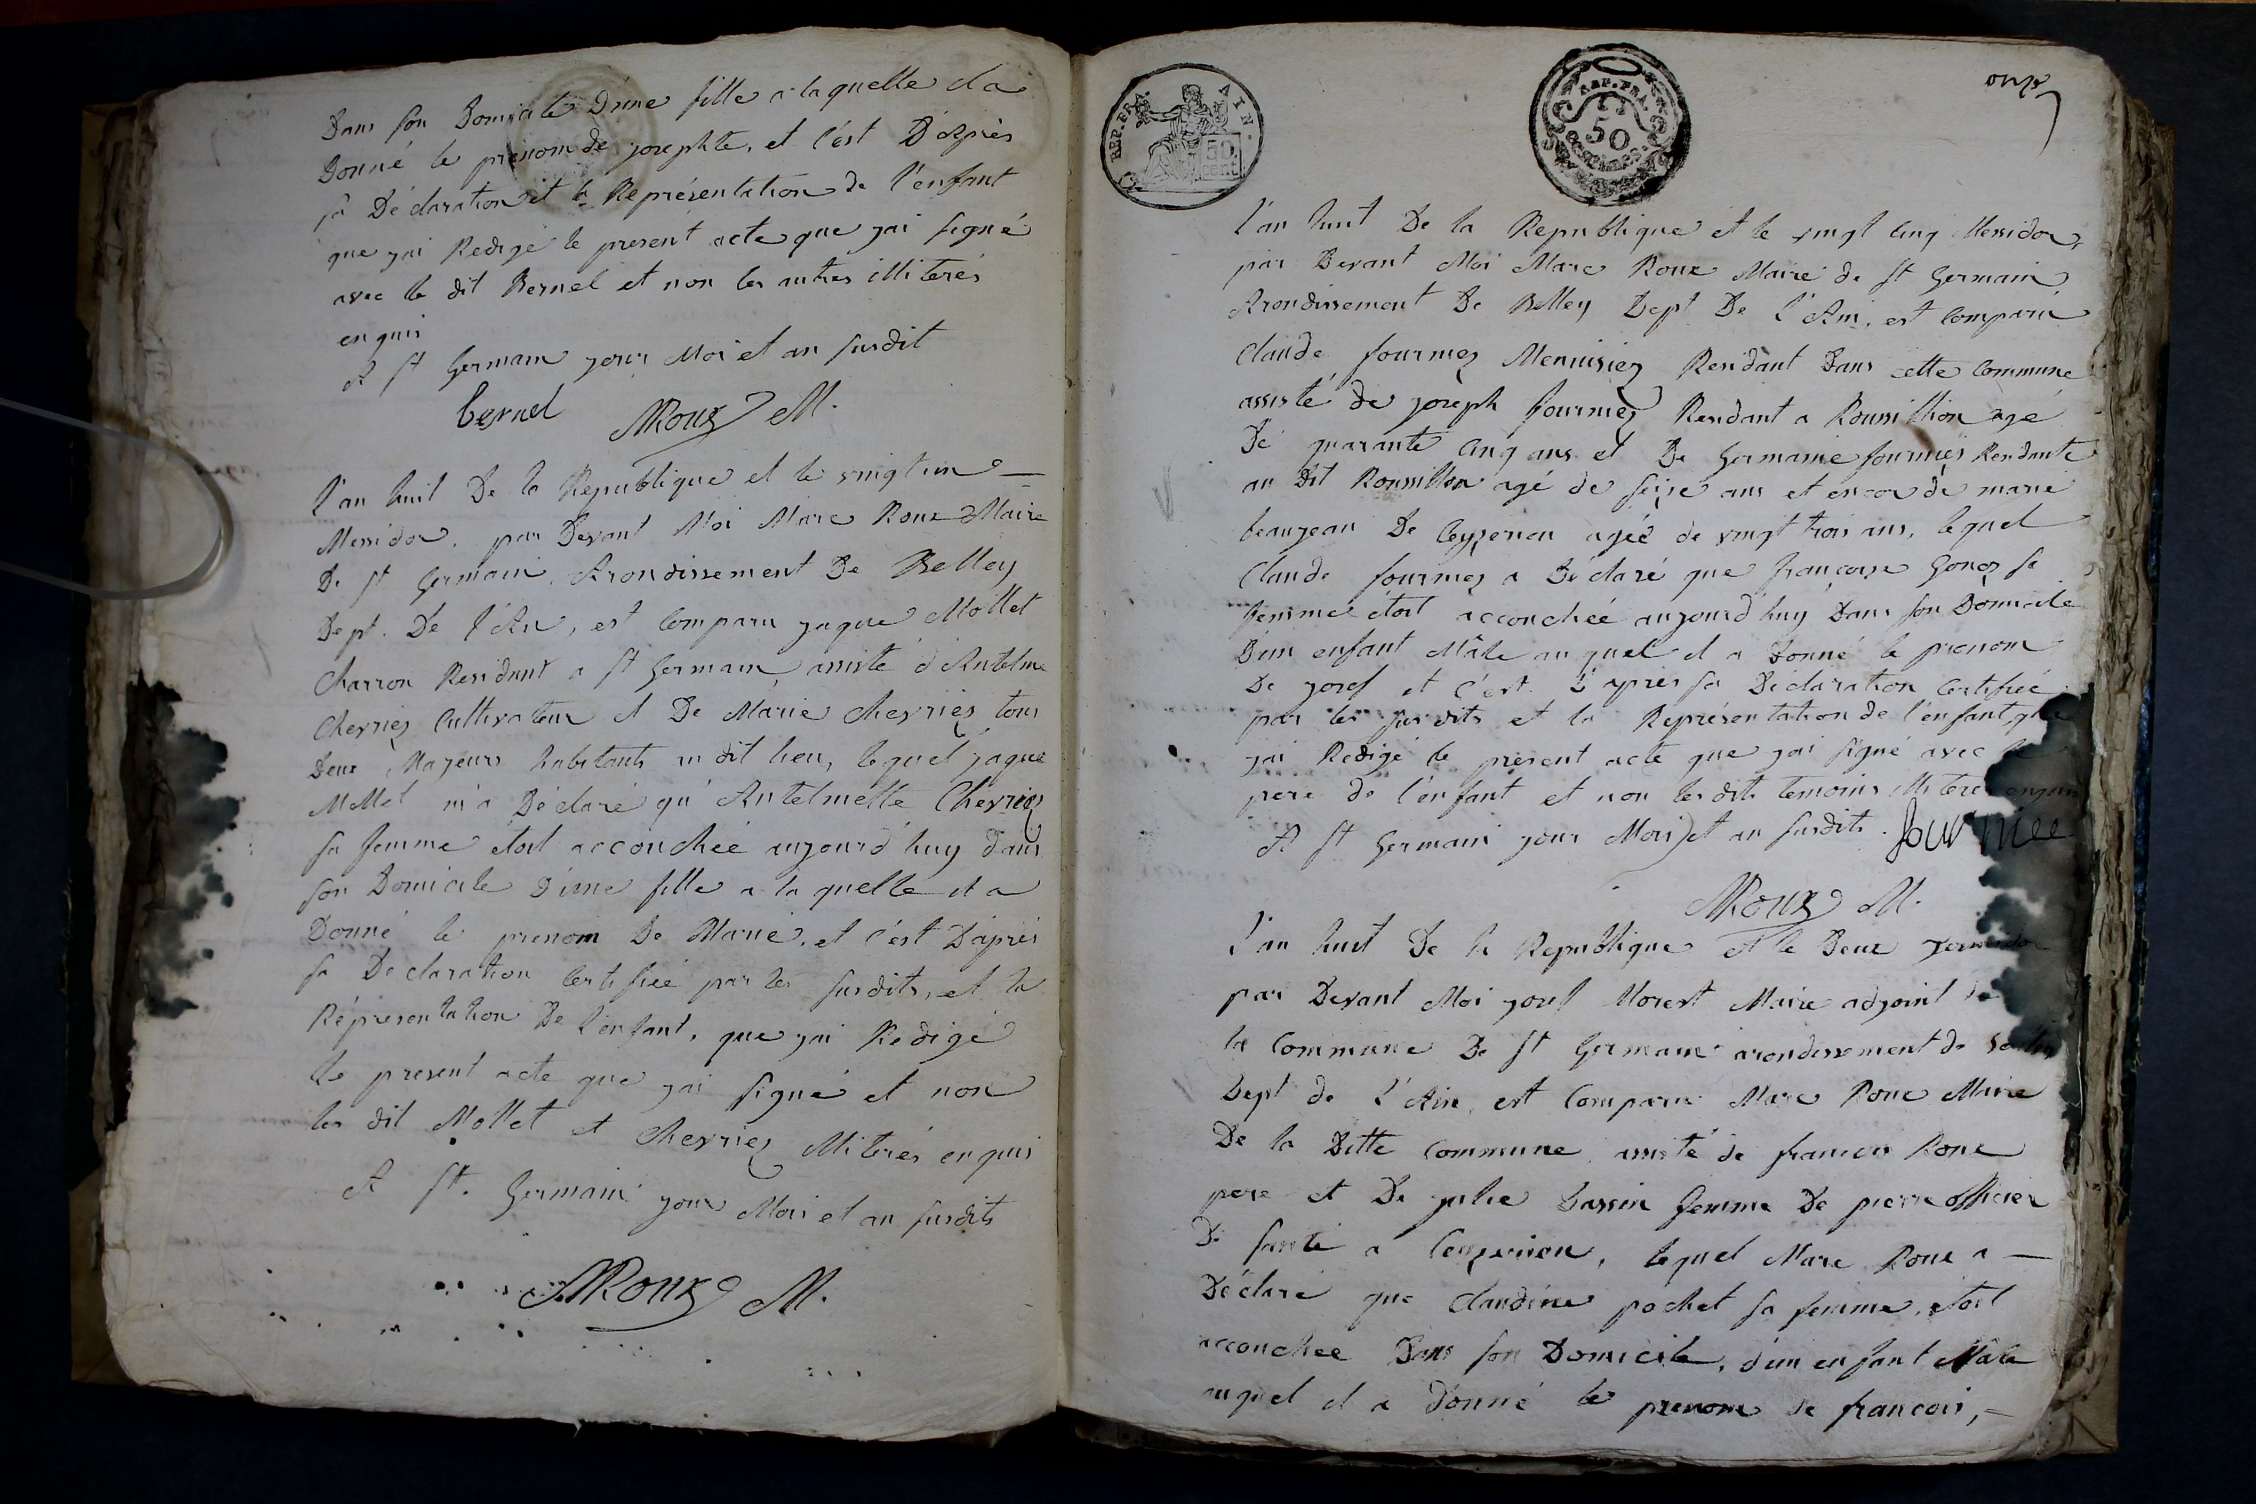 Dans son Domicile D'une fille a laquelle il a
Donné le prenom de josephte, et c'est D'après
sa Déclaration et la Représentation de l'enfant
que j'ai Redigé le present acte que j'ai signé
avec le dit Bernel et non les autres illiterés
enquis
A St Germain jour Moi et an susdit
bernel MRoux M.
l'an huit De la Republique et le vingt un
Messidor, par Devant Moi Marc Roux Maire
De St Germain, Arondissement De Belley
Dept. De l'Ain, est Comparu jaque Mollet
Charron Residant a St Germain, assisté d'Antelme
Chevriez Cultivateur et De Marie chevriez tous
Deux Majeurs habitants au dit lieu, lequel jaque
Mollet m'a Déclaré qu'Antelmette Chevriez
sa femme étoit accouchée aujourd'huy dans
son Domicile D'une fille a laquelle il a
Donné le prenom De Marie, et c'est D'après
sa Déclaration Certifiée par les susdits, et la
Répresentation De l'enfant, que j'ai Redigé
le present acte que j'ai signé et non
les dit Mollet et chevriez illiterés enquis
A St. Germain jour Mois et an susdits
MRoux M.
REP. FRA. AIN.
50 cent
REP. FRA.
50
centimes
onze
l'an huit De la Republique et le vingt cinq Messidor,
par Devant Moi Marc Roux Maire de St Germain
Arondissement De Belley Dept De l'Ain, est Comparu
Claude fourniez Menuisiez Residant Dans cette Commune
assisté de joseph fourniez Residant a Roussillion age
De quarante cinq ans et De Germaine fourniés Residante
au Dit Roussillon agé de seize ans et encor de marie
beaujean De Ceyzerieu agée de vingt trois ans, lequel
Claude fourniez a Déclaré que françoise Gonez sa
femme étoit accouchée aujourd'huy Dans son Domicile
D'un enfant Mâle au quel il a Donné le prenom
De josef et c'est D'après sa Déclaration Certifiée
par les susdits et la Représentation de l'enfant, que
j'ai Redigé le present acte que j'ai signé avec le
pere de l'enfant et non les dits temoins illiterés enquis
A St Germain jour Mois et an susdits. fourniee
MRoux M.
l'an huit De la Republique et le Deux
par Devant Moi josef Morest Maire adjoint de
la Commune De St Germain arondissement de
Dept de l'Ain, est Comparu Marc Roux Maire
De la Ditte Commune assisté de francois Roux
pere et De julie bassin femme De pierre officier
De santé a Ceyzerieu, lequel Marc Roux a
Déclaré que Claudine pochet sa femme, etoit
accouchee Dans son Domicile, d'un enfant Mâle
auquel il a donné le prenom De francois,